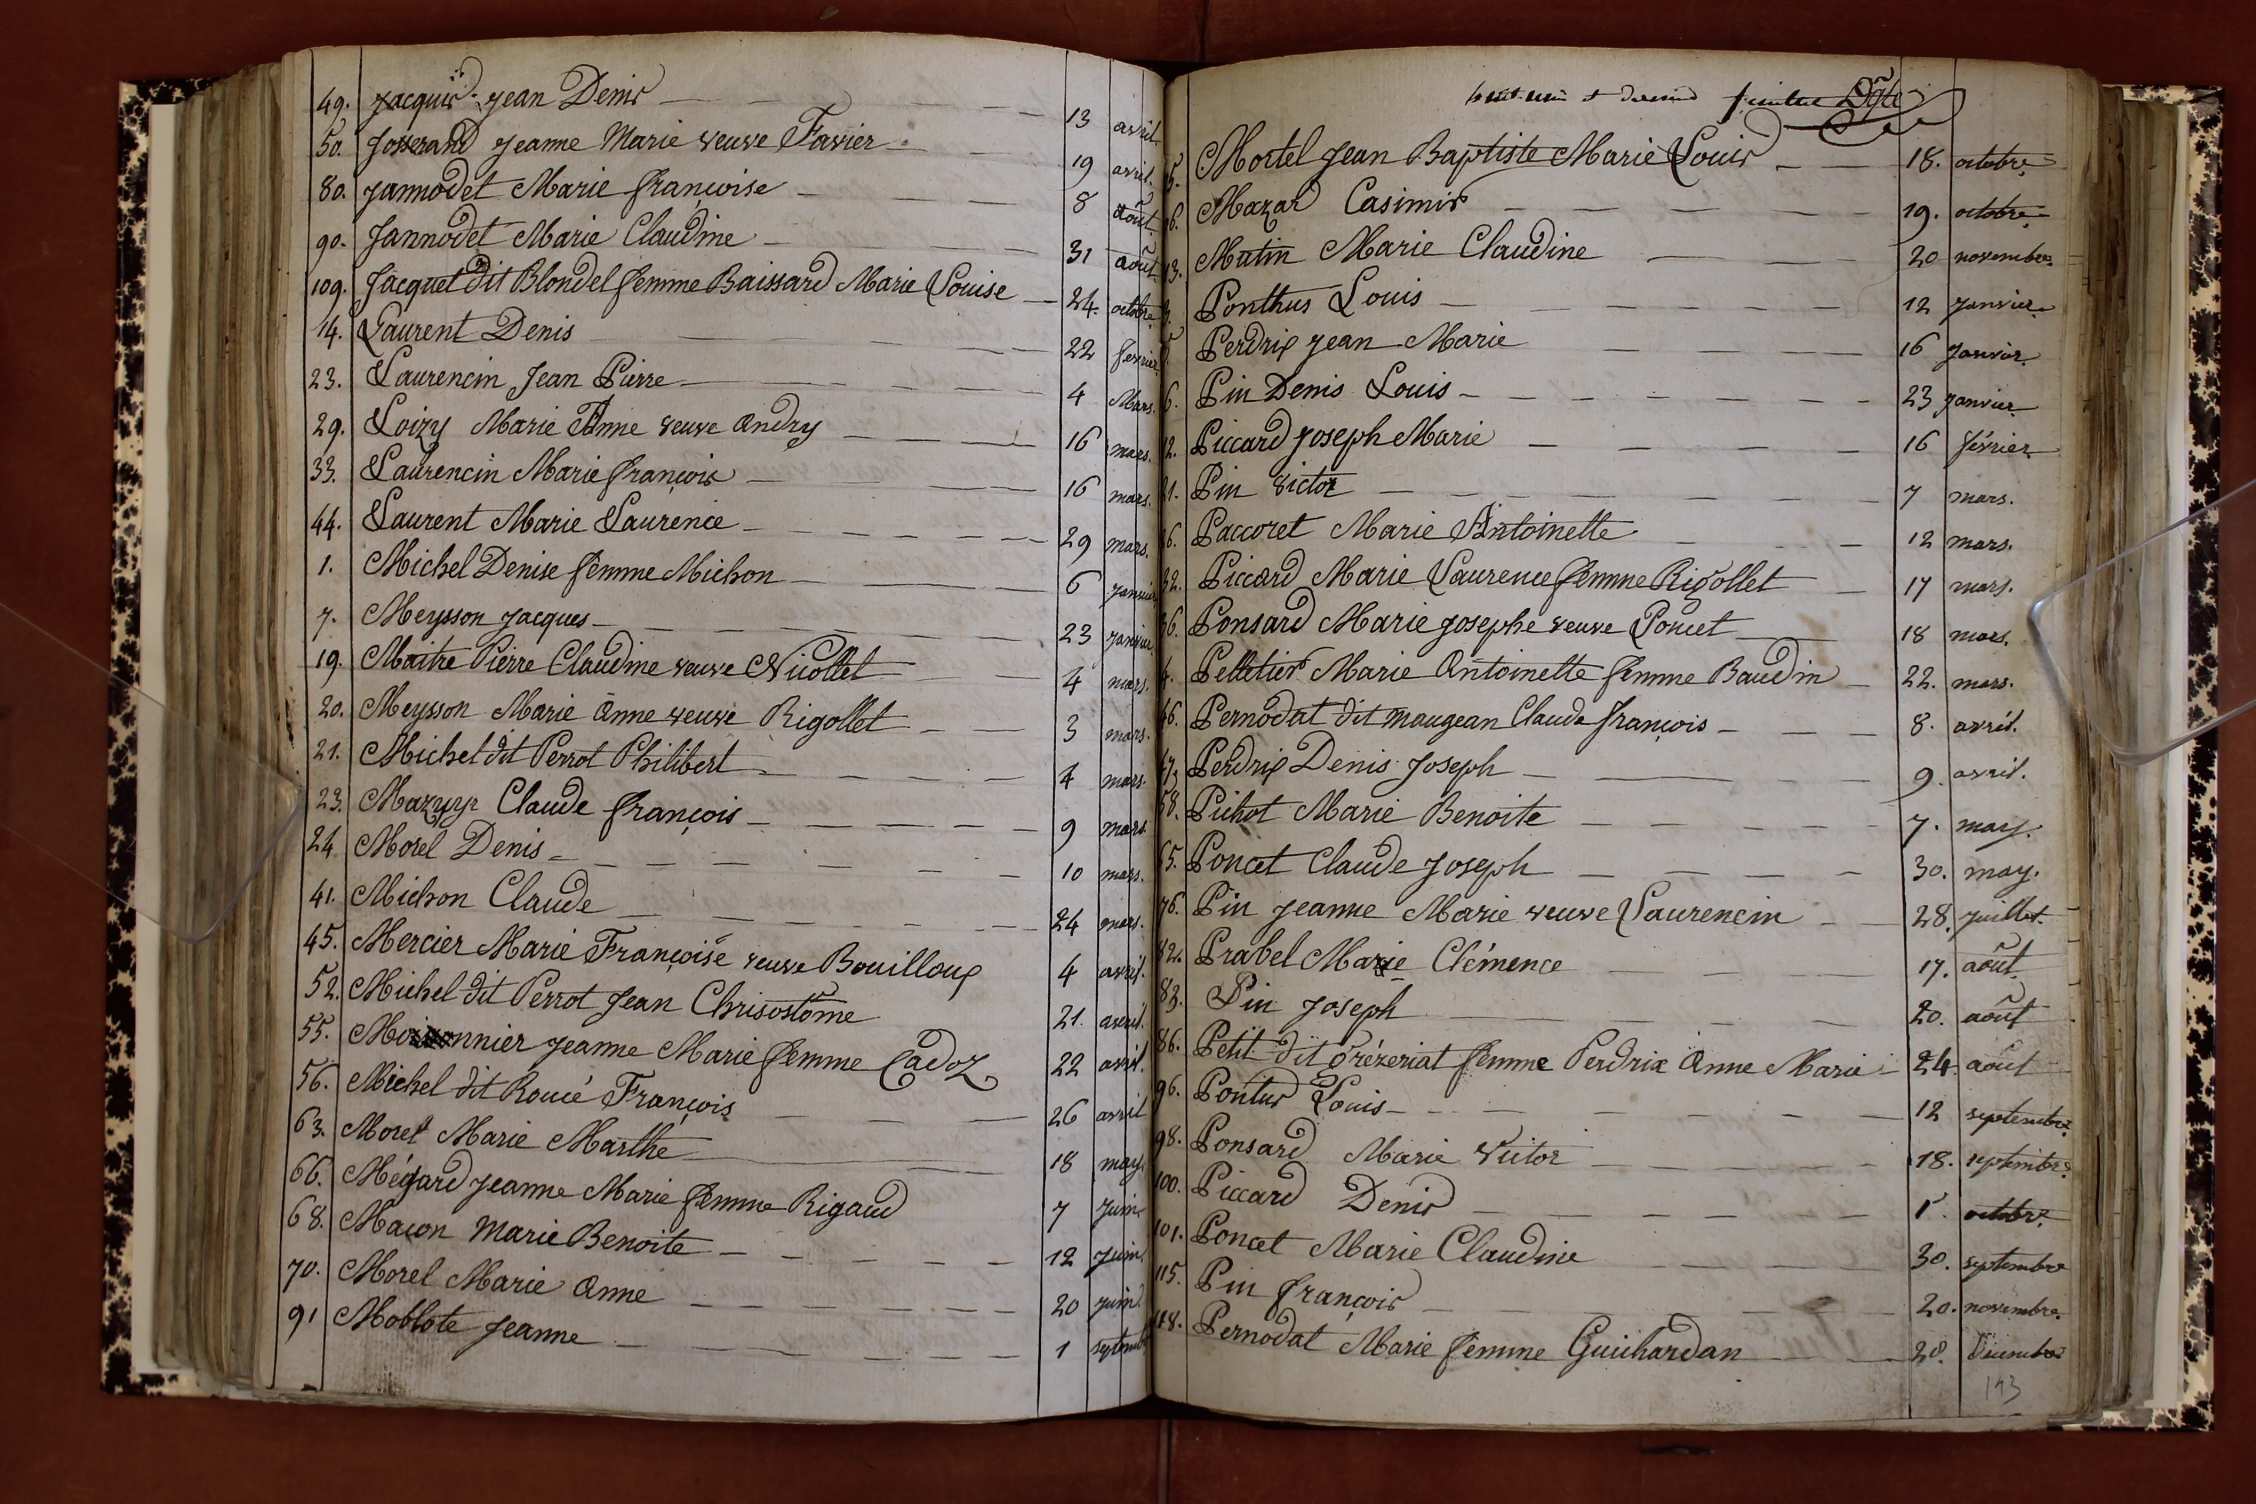 49. Jacquis Jean Denis 13 avril.
50. Josserand Jeanne Marie veuve Favier 19 avril.
80. Jannodet Marie françoise 8 août.
90. Jannodet Marie Claudine 31 août
109. Jacquet dit Blondel femme Baissard Marie Louise 24. octobre
14. Laurent Denis 22 fevrier
23. Laurencin Jean Pierre 4 Mars.
29. Loizy Marie Anne veuve Andry 16 mars.
33. Laurencin Marie françois 16 mars.
44. Laurent Marie Laurence 29 mars.
1. Michel Denise femme Michon 6 janvier
7. Meysson Jacques 23 janvier
19. Maitre Pierre Claudine veuve Nicollet 4 mars.
20. Meysson Marie Anne veuve Rigollet 3 mars.
21. Michel dit Perrot Philibert 4 mars.
23. Mazuyr Claude françois 9 mars
24. Morel Denis 10 mars.
41. Michon Claude 24 mars.
45. Mercier Marie Françoise veuve Bouilloux 4 avril.
52. Michel dit Perrot Jean Chrisostôme 21. avril.
55. Moissonnier Jeanne Marie femme Cadoz 22 avril.
56. Michel dit Roucé François 26 avril
63. Morel Marie Marthe 18 may.
66. Mégard Jeanne Marie femme Rigaud 7 juin
68. Maçon Marie Benoite 12 juin.
70. Morel Marie Anne 20 juin.
91 Moblote Jeanne 1 septemb
et dernier feuillet Dgte
5. Mortel Jean Baptiste Marie Louis 18. octobre.
6. Mazar Casimir 19. octobre
13. Mutin Marie Claudine 20 novembre.
3. Ponthus Louis 12 janvier.
Perdrix Jean Marie 16 janvier.
6. Pin Denis Louis 23 janvier.
12. Piccard Joseph Marie 16 février.
21. Pin Victor 7 mars.
26. Paccoret Marie Antoinette 12 mars.
32. Piccard Marie Laurence femme Rigollet 17 mars.
36. Ponsard Marie Josephe veuve Poncet 18 mars.
4. Pelletier Marie Antoinette femme Baudin 22. mars.
46. Pernodat dit Maugean Claude françois 8. avril.
47. Perdrix Denis Joseph 9. avril.
58. Pichot Marie Benoite 7. may.
65. Poncet Claude Joseph 30. may.
76. Pin Jeanne Marie veuve Laurencin 28. juillet.
82. Prabel Marie Clémence 17. août.
83. Pin Joseph 20. août
86. Petit dit Trézeriat femme Perdrix Anne Marie 24. août
96. Pontus Louis 12 septembre.
98. Ponsard Marie Victor 18. septembre.
100. Piccard Denis 1. octobre.
101. Poncet Marie Claudine 30. septembre
115. Pin françois 20. novembre.
118. Pernodat Marie femme Guichardan 28. Décembre
143